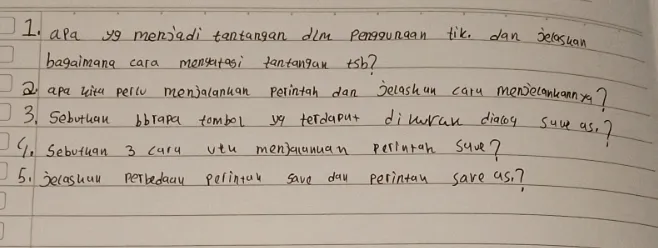 1. apa yg menjadi tantangan dlm penggunaan tik. dan jelaskan
bagaimana cara mengatasi tantangan tsb?
2. apa kita perlu menjalankan perintah dan jelaskan cara menjelankannya?
3. Sebutkan bbrapa tombol yg terdapat di dialog save as.?
4. Sebutkan 3 cara utu menjalankan perintah save?
5. jelaskan perbedaan perintah save dan perintah save as.?